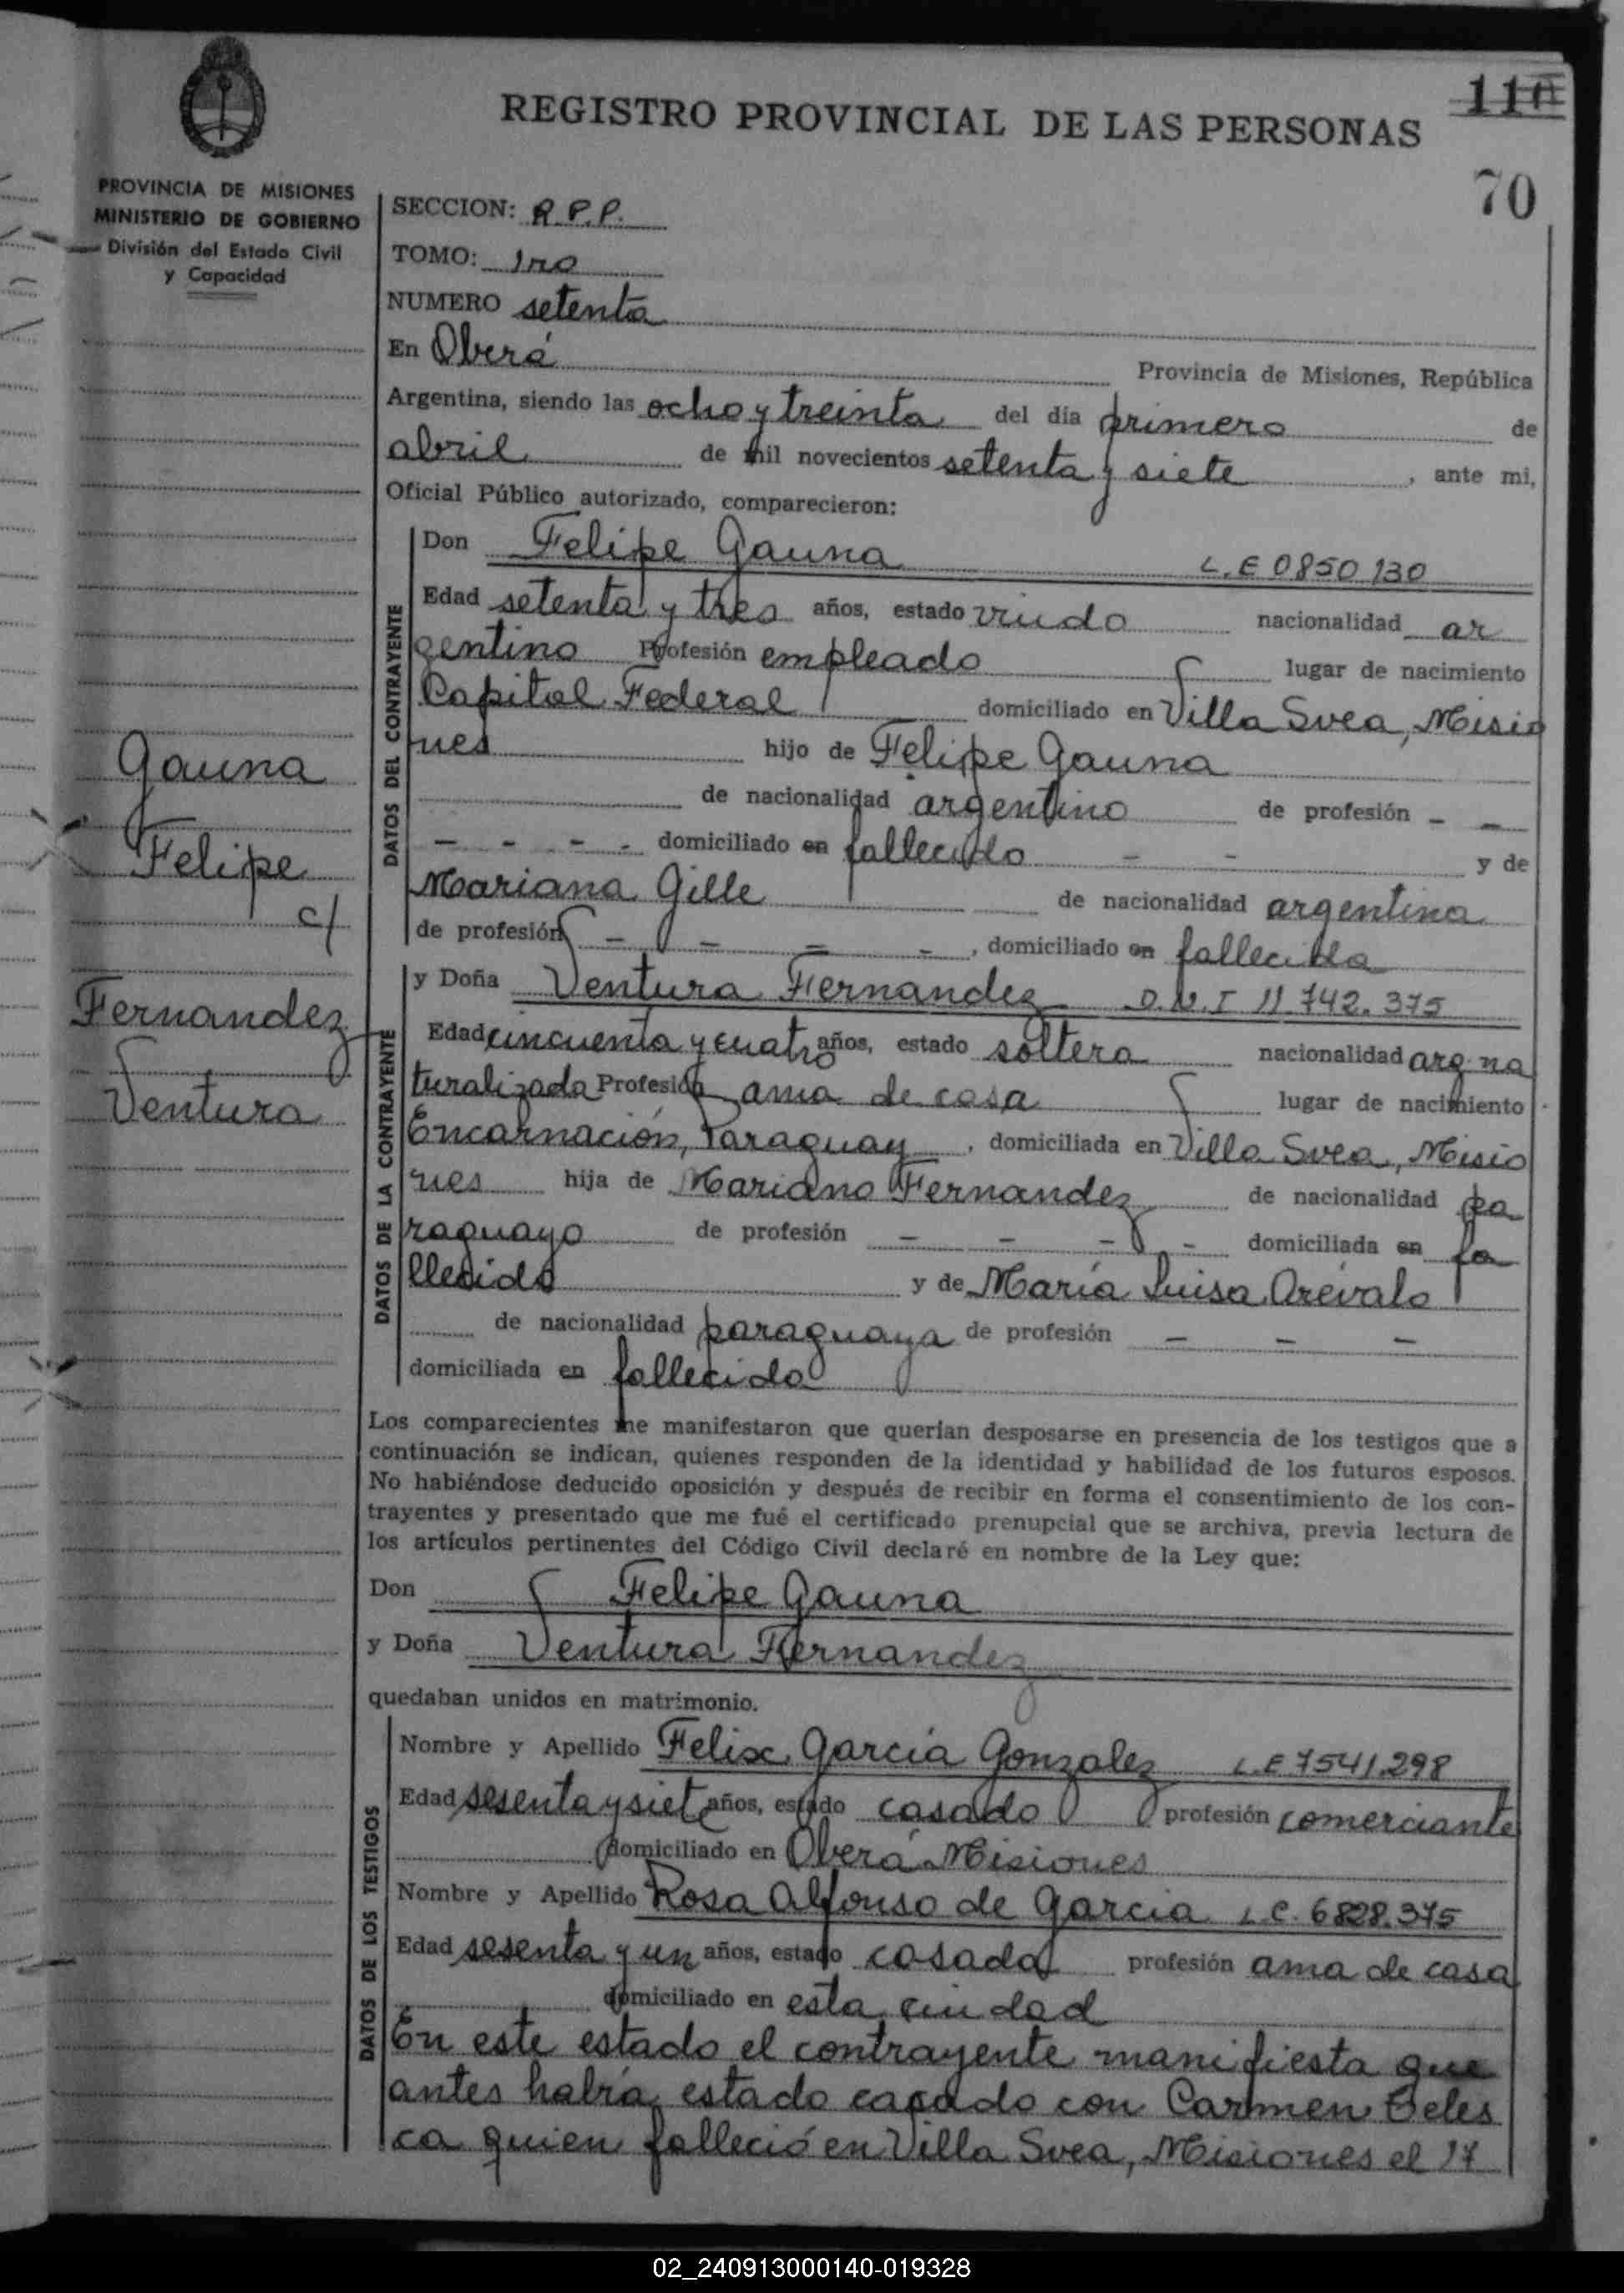 110
REGISTRO PROVINCIAL DE LAS PERSONAS
70
PROVINCIA DE MISIONES
MINISTERIO DE GOBIERNO
División del Estado Civil
y Capacidad
Gauna
Felipe
c/
Fernandez
Ventura
SECCION: R.P.P.
TOMO: 1ro
NUMERO setenta
En Oberá Provincia de Misiones, República
Argentina, siendo las ocho y treinta del día primero de
abril de mil novecientos setenta y siete, ante mi,
Oficial Público autorizado, comparecieron:
DATOS DEL CONTRAYENTE
Don Felipe Gauna L.E 0850130
Edad setenta y tres años, estado viudo nacionalidad ar
gentino Profesión empleado lugar de nacimiento
Capital Federal domiciliado en Villa Svea, Misio
nes hijo de Felipe Gauna
de nacionalidad argentino de profesión - -
- - - - domiciliado en fallecido - - y de
Mariana Gille de nacionalidad argentina
de profesión - - - -, domiciliado en fallecida
DATOS DE LA CONTRAYENTE
y Doña Ventura Fernandez D.N.I 11.742.375
Edad cincuenta y cuatro años, estado soltera nacionalidad arg. na
turalizada Profesión ama de casa lugar de nacimiento
Encarnación, Paraguay, domiciliada en Villa Svea, Misio
nes hija de Mariano Fernandez de nacionalidad pa
raguayo de profesión - - - - domiciliada en fa
llecido y de María Luisa Arévalo
de nacionalidad paraguaya de profesión - - -
domiciliada en fallecida
Los comparecientes me manifestaron que querían desposarse en presencia de los testigos que a
continuación se indican, quienes responden de la identidad y habilidad de los futuros esposos.
No habiéndose deducido oposición y después de recibir en forma el consentimiento de los con-
trayentes y presentado que me fué el certificado prenupcial que se archiva, previa lectura de
los artículos pertinentes del Código Civil declaré en nombre de la Ley que:
Don Felipe Gauna
y Doña Ventura Fernandez
quedaban unidos en matrimonio.
DATOS DE LOS TESTIGOS
Nombre y Apellido Felix Garcia Gonzalez L.E 7541.298
Edad sesenta y siete años, estado casado profesión comerciante
domiciliado en Oberá Misiones
Nombre y Apellido Rosa Alfonso de Garcia L.C. 6828.375
Edad sesenta y un años, estado casada profesión ama de casa
domiciliado en esta ciudad
En este estado el contrayente manifiesta que
antes había estado casado con Carmen Beles
ca quien falleció en Villa Svea, Misiones el 17
02_240913000140-019328